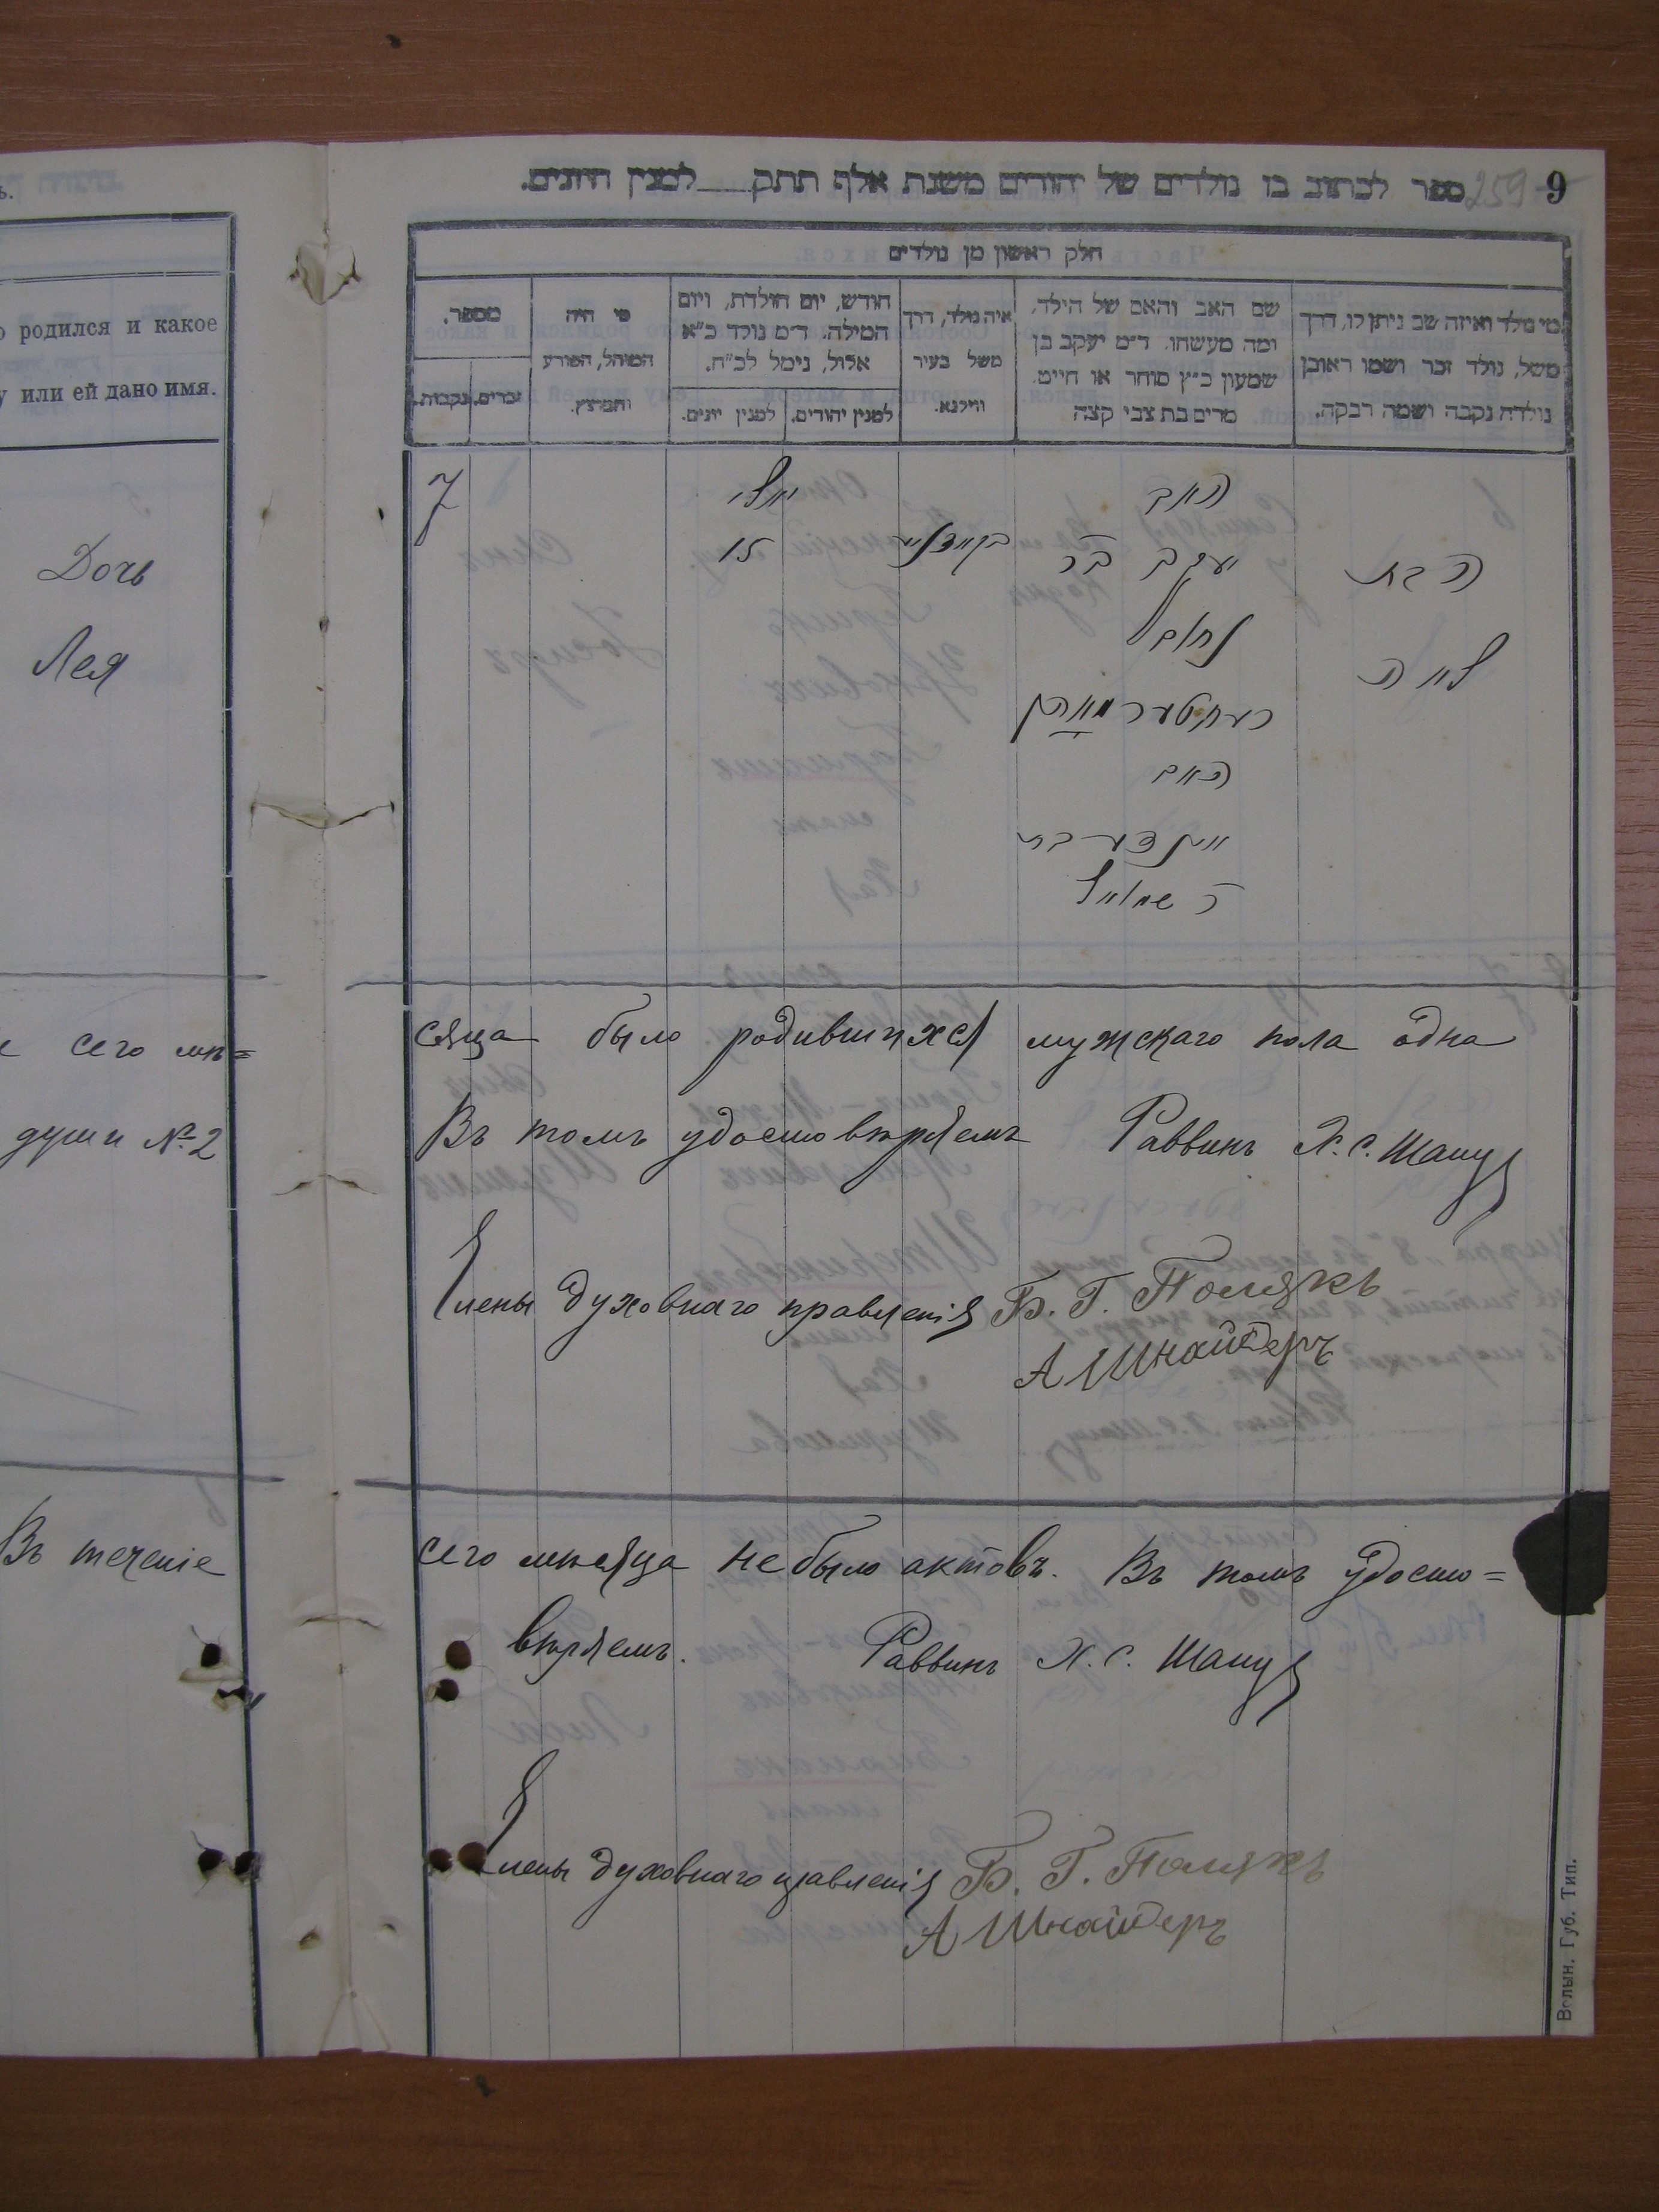 ь.
о родился и какое
у или ей дано имя.
Дочь
Лея
е сего мѣ=
души № 2
Въ теченіе
9
259
ספר לכתוב בו נולדים של יהודים משנת אלף תתק___למנין היונים.
חלק ראשון מן נולדים
מי נולד ואיזה שם ניתן לו, דרך
משל, נולד זכר ושמו ראובן
נולדה נקבה ושמה רבקה.
שם האב והאם של הילד,
ומה מעשהו. ד״מ יעקב בן
שמעון כ״ץ סוחר או חייט.
מרים בת צבי קצה
איה נולד, דרך
משל בעיר
ווילנא.
חודש, יום הולדת, ויום
המילה. ד״מ נולד כ״א
אלול, נימל לכ״ח.
למנין יהודים.
למנין יונים.
מי היה
המוהל, הפורע
והמוצץ.
מספר.
זכרים.
נקבות.
הבת
לאה
האב
יעקב בר
נחום
רעכטערמאן
האם
שמואל
יולי
15
7
сяца было родившихся мужскаго пола одна
Въ томъ удостовѣряемъ Раввинъ Х. С. Шапу
Члены духовнаго правленія Б. Г. Полякъ
А Шнайдеръ
сего мѣсяца не было актовъ. Въ томъ удосто=
вѣряемъ. Раввинъ Х. С. Шапу
Члены духовнаго правленія Б. Г. Полякъ
А Шнайдеръ
Волын. Губ. Тип.